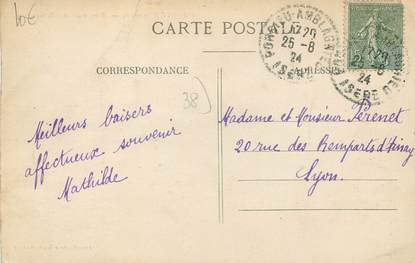 10€
CARTE POSTALE
25-8
24
ISERE
CORRESPONDANCE
ADRESSE
38
Meilleurs baisers
affectueux souvenir
Mathilde
Madame et Monsieur Perenet
20 rue des Remparts d'Ainay
Lyon.